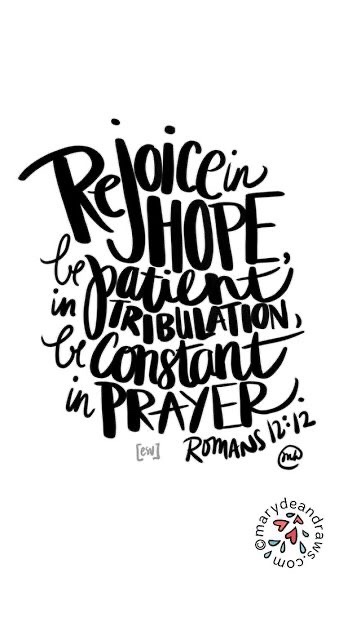 Rejoice in
HOPE,
be patient
in TRIBULATION,
be constant
in PRAYER.
ROMANS 12:12
[esv]
©marydeandraws.com